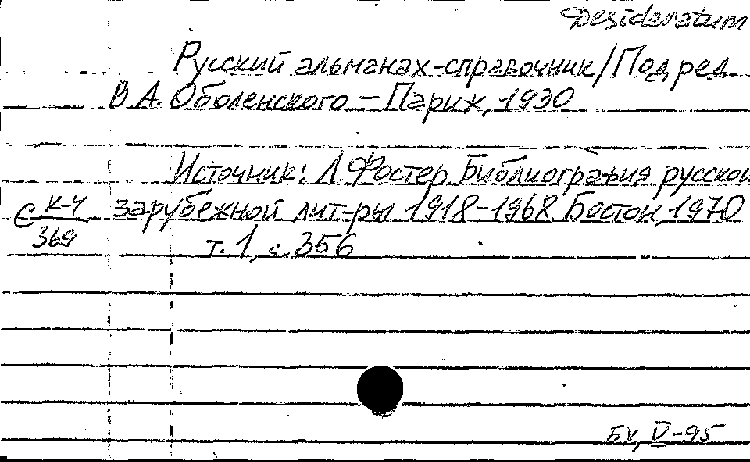 Desideratum
Русский альманах-справочник/Под ред.
В.А. Оболенского – Париж, 1930
Источник: Л. Фостер Библиография русской
зарубежной лит-ры 1918-1968 Бостон, 1970
т. 1, с. 356
Є К-4
369
БУ, V-95